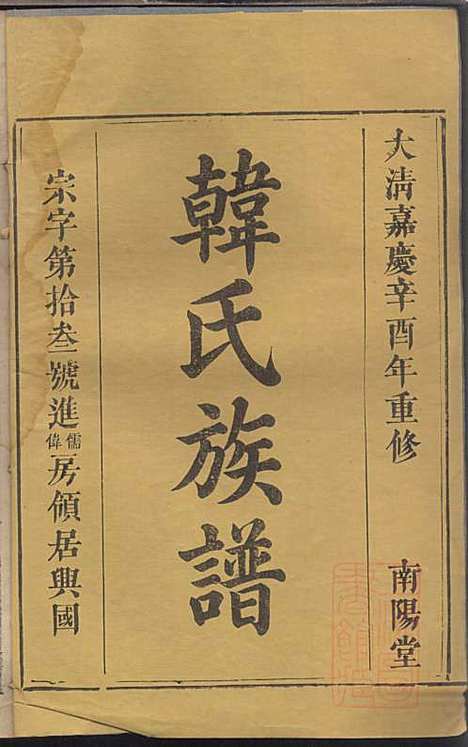 大淸嘉慶辛酉年重修 南陽堂
韓氏族譜
宗字第拾叁號進儒偉房領居興國